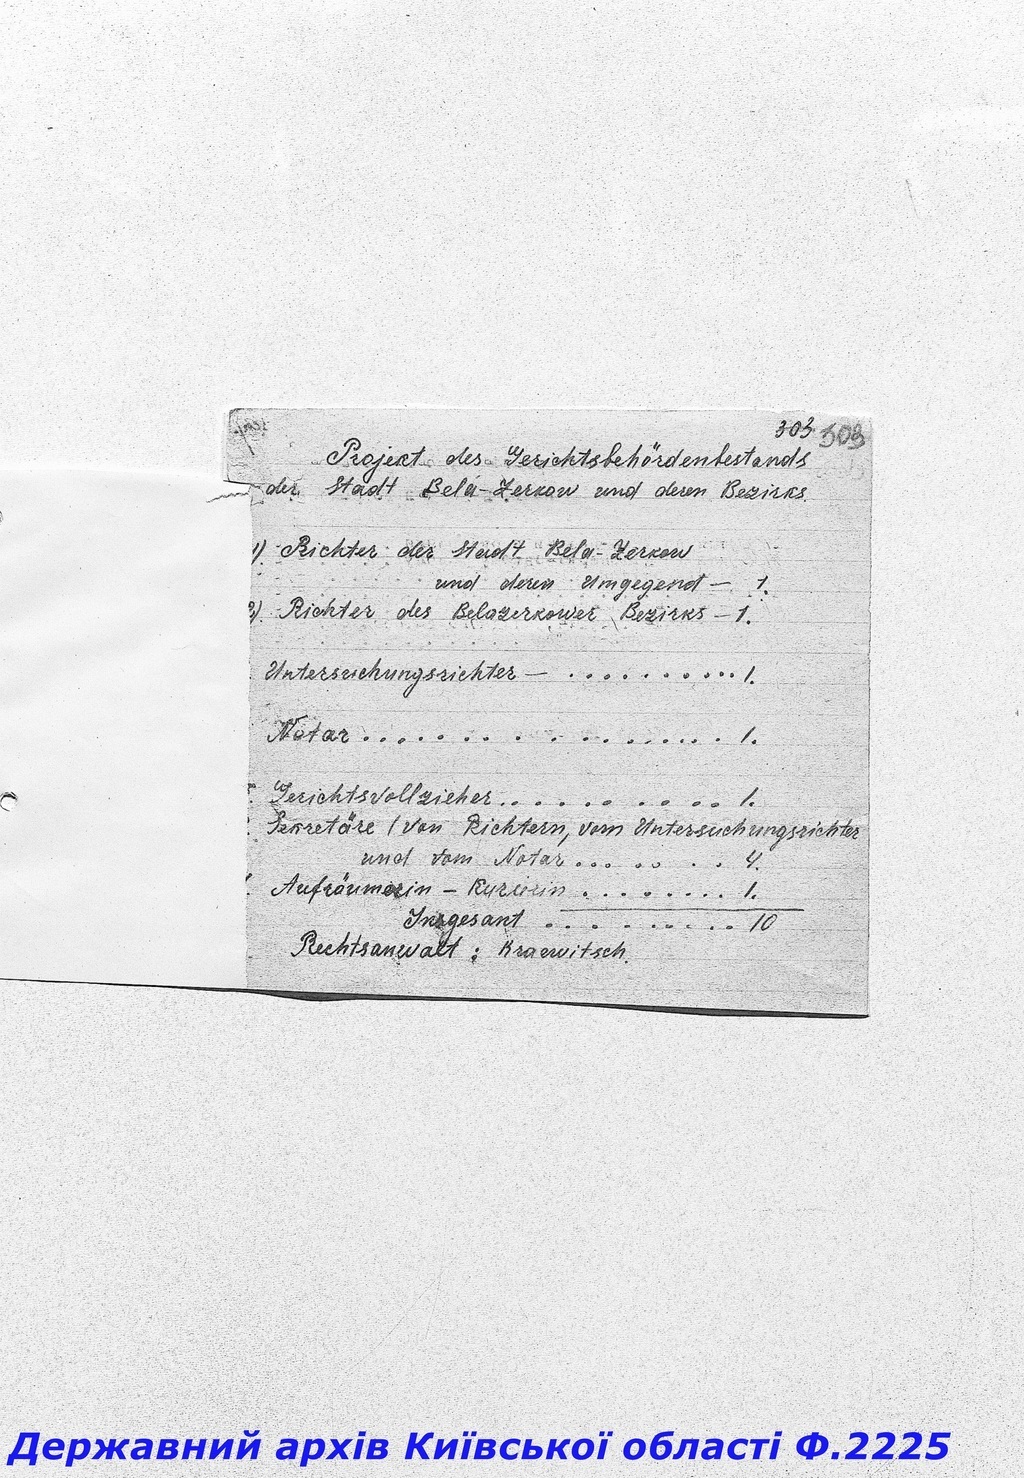 303 303
Projekt des Gerichtsbehördenbestands
der Stadt Belá-Zerkow und deren Bezirks.
1) Richter der Stadt Bela-Zerkow
und deren Umgegend — 1.
2) Richter des Belazerkower Bezirks — 1.
Untersuchungsrichter — .......... 1.
Notar .................. 1.
Gerichtsvollzieher .......... 1.
Sekretäre / von Richtern, vom Untersuchungsrichter
und vom Notar ........ 4.
Aufräumerin — Kurierin ........ 1.
Insgesant .......... 10
Rechtsanwalt : Kraewitsch.
Державний архів Київської області Ф.2225